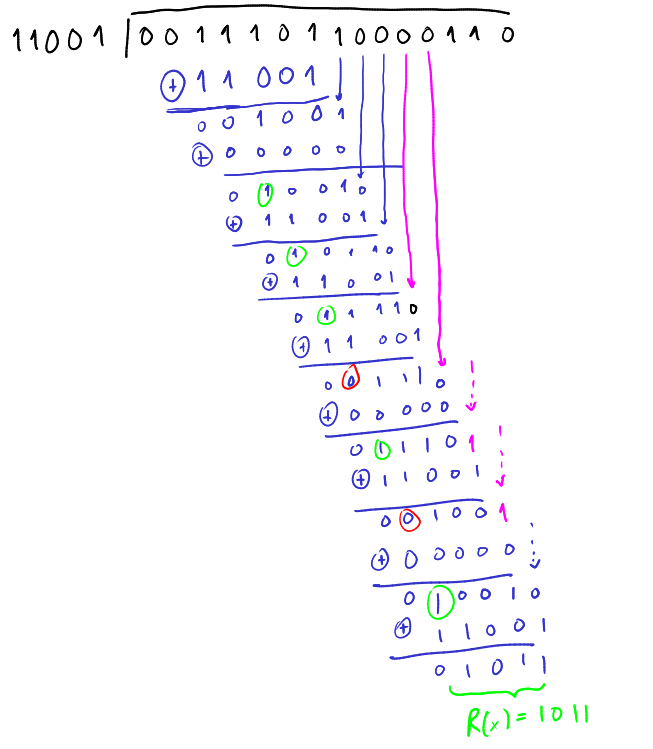 11001 | 00111101100000110
⊕ 11001
001001
⊕ 00000
010010
⊕ 11001
010110
⊕ 11001
011110
⊕ 11001
001110
⊕ 00000
011101
⊕ 11001
001001
⊕ 00000
010010
⊕ 11001
01011
R(x) = 1011